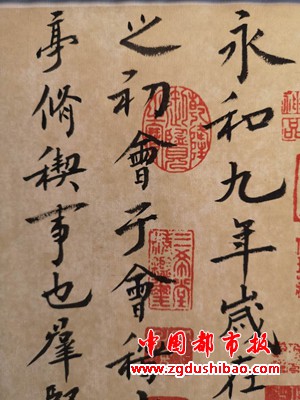 永和九年歲在
之初會于會稽
亭脩稧事也羣賢
三希堂
中国都市报
www.zgdushibao.com